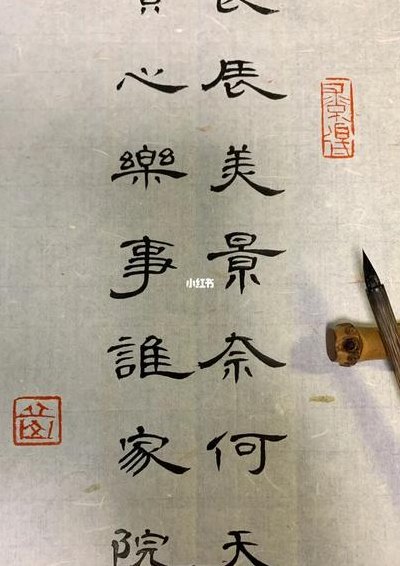 辰美景奈何天
心樂事誰家院
小红书